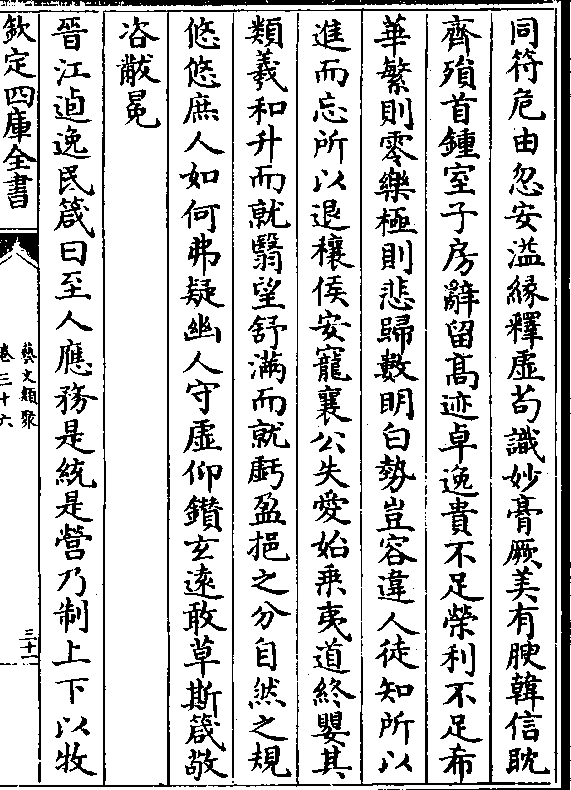 同符危由忽安溢緣釋虛苟識妙膏厥美有腴韓信耽
齊殞首鍾室子房辭留高迹卓逸貴不足榮利不足希
華繁則零樂極則悲歸數明白勢豈容違人徒知所以
進而忘所以退穰侯安寵襄公失愛始乘夷道終嬰其
類羲和升而就翳望舒滿而就虧盈挹之分自然之規
悠悠庶人如何弗疑幽人守虛仰鑽玄遠敢草斯箴敬
咨黻冕
晉江逌逸民箴曰至人應務是統是營乃制上下以牧
欽定四庫全書
藝文類聚
卷三十六
三十一